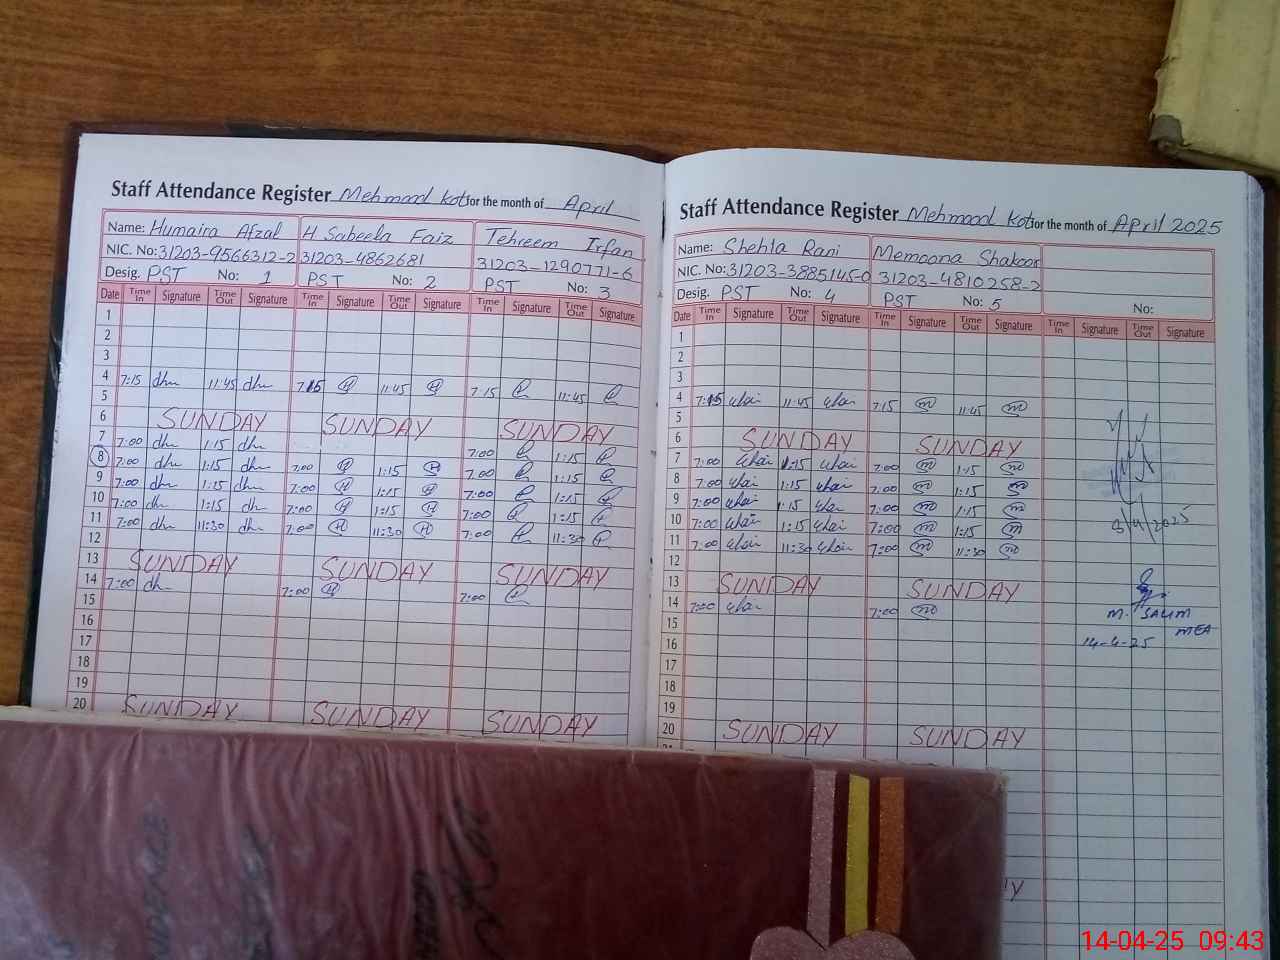 Staff Attendance Register Mehmood Kot for the month of April
Name: Humaira Afzal H Sabeela Faiz Tehreem Irfan
NIC. No: 31203-9566312-2 31203-4862681 31203-1290771-6
Desig. PST No: 1 PST No: 2 PST No: 3
Date Time In Signature Time Out Signature Time In Signature Time Out Signature Time In Signature Time Out Signature
1
2
3
4 7:15 11:45 7:15 11:45 7:15 11:45
5
6 SUNDAY SUNDAY SUNDAY
7 7:00 1:15 7:00 1:15
8 7:00 1:15 7:00 1:15 7:00 1:15
9 7:00 1:15 7:00 1:15 7:00 1:15
10 7:00 1:15 7:00 1:15 7:00 1:15
11 7:00 11:30 7:00 11:30 7:00 11:30
12
13 SUNDAY SUNDAY SUNDAY
14 7:00 7:00 7:00
15
16
17
18
19
20 SUNDAY SUNDAY SUNDAY
Staff Attendance Register Mehmood Kot for the month of April 2025
Name: Shehla Rani Memoona Shakoor
NIC. No: 31203-3885145-0 31203-4810258-2
Desig. PST No: 4 PST No: 5 No:
Date Time In Signature Time Out Signature Time In Signature Time Out Signature Time In Signature Time Out Signature
1
2
3
4 7:15 11:45 7:15 11:45
5
6 SUNDAY SUNDAY
7 7:00 1:15 7:00 1:15
8 7:00 1:15 7:00 1:15
9 7:00 1:15 7:00 1:15
10 7:00 1:15 7:00 1:15
11 7:00 11:30 7:00 11:30
12
13 SUNDAY SUNDAY
14 7:00 7:00
15
16
17
18
19
20 SUNDAY SUNDAY
M. SALIM
MEA
14-4-25
14-04-25 09:43